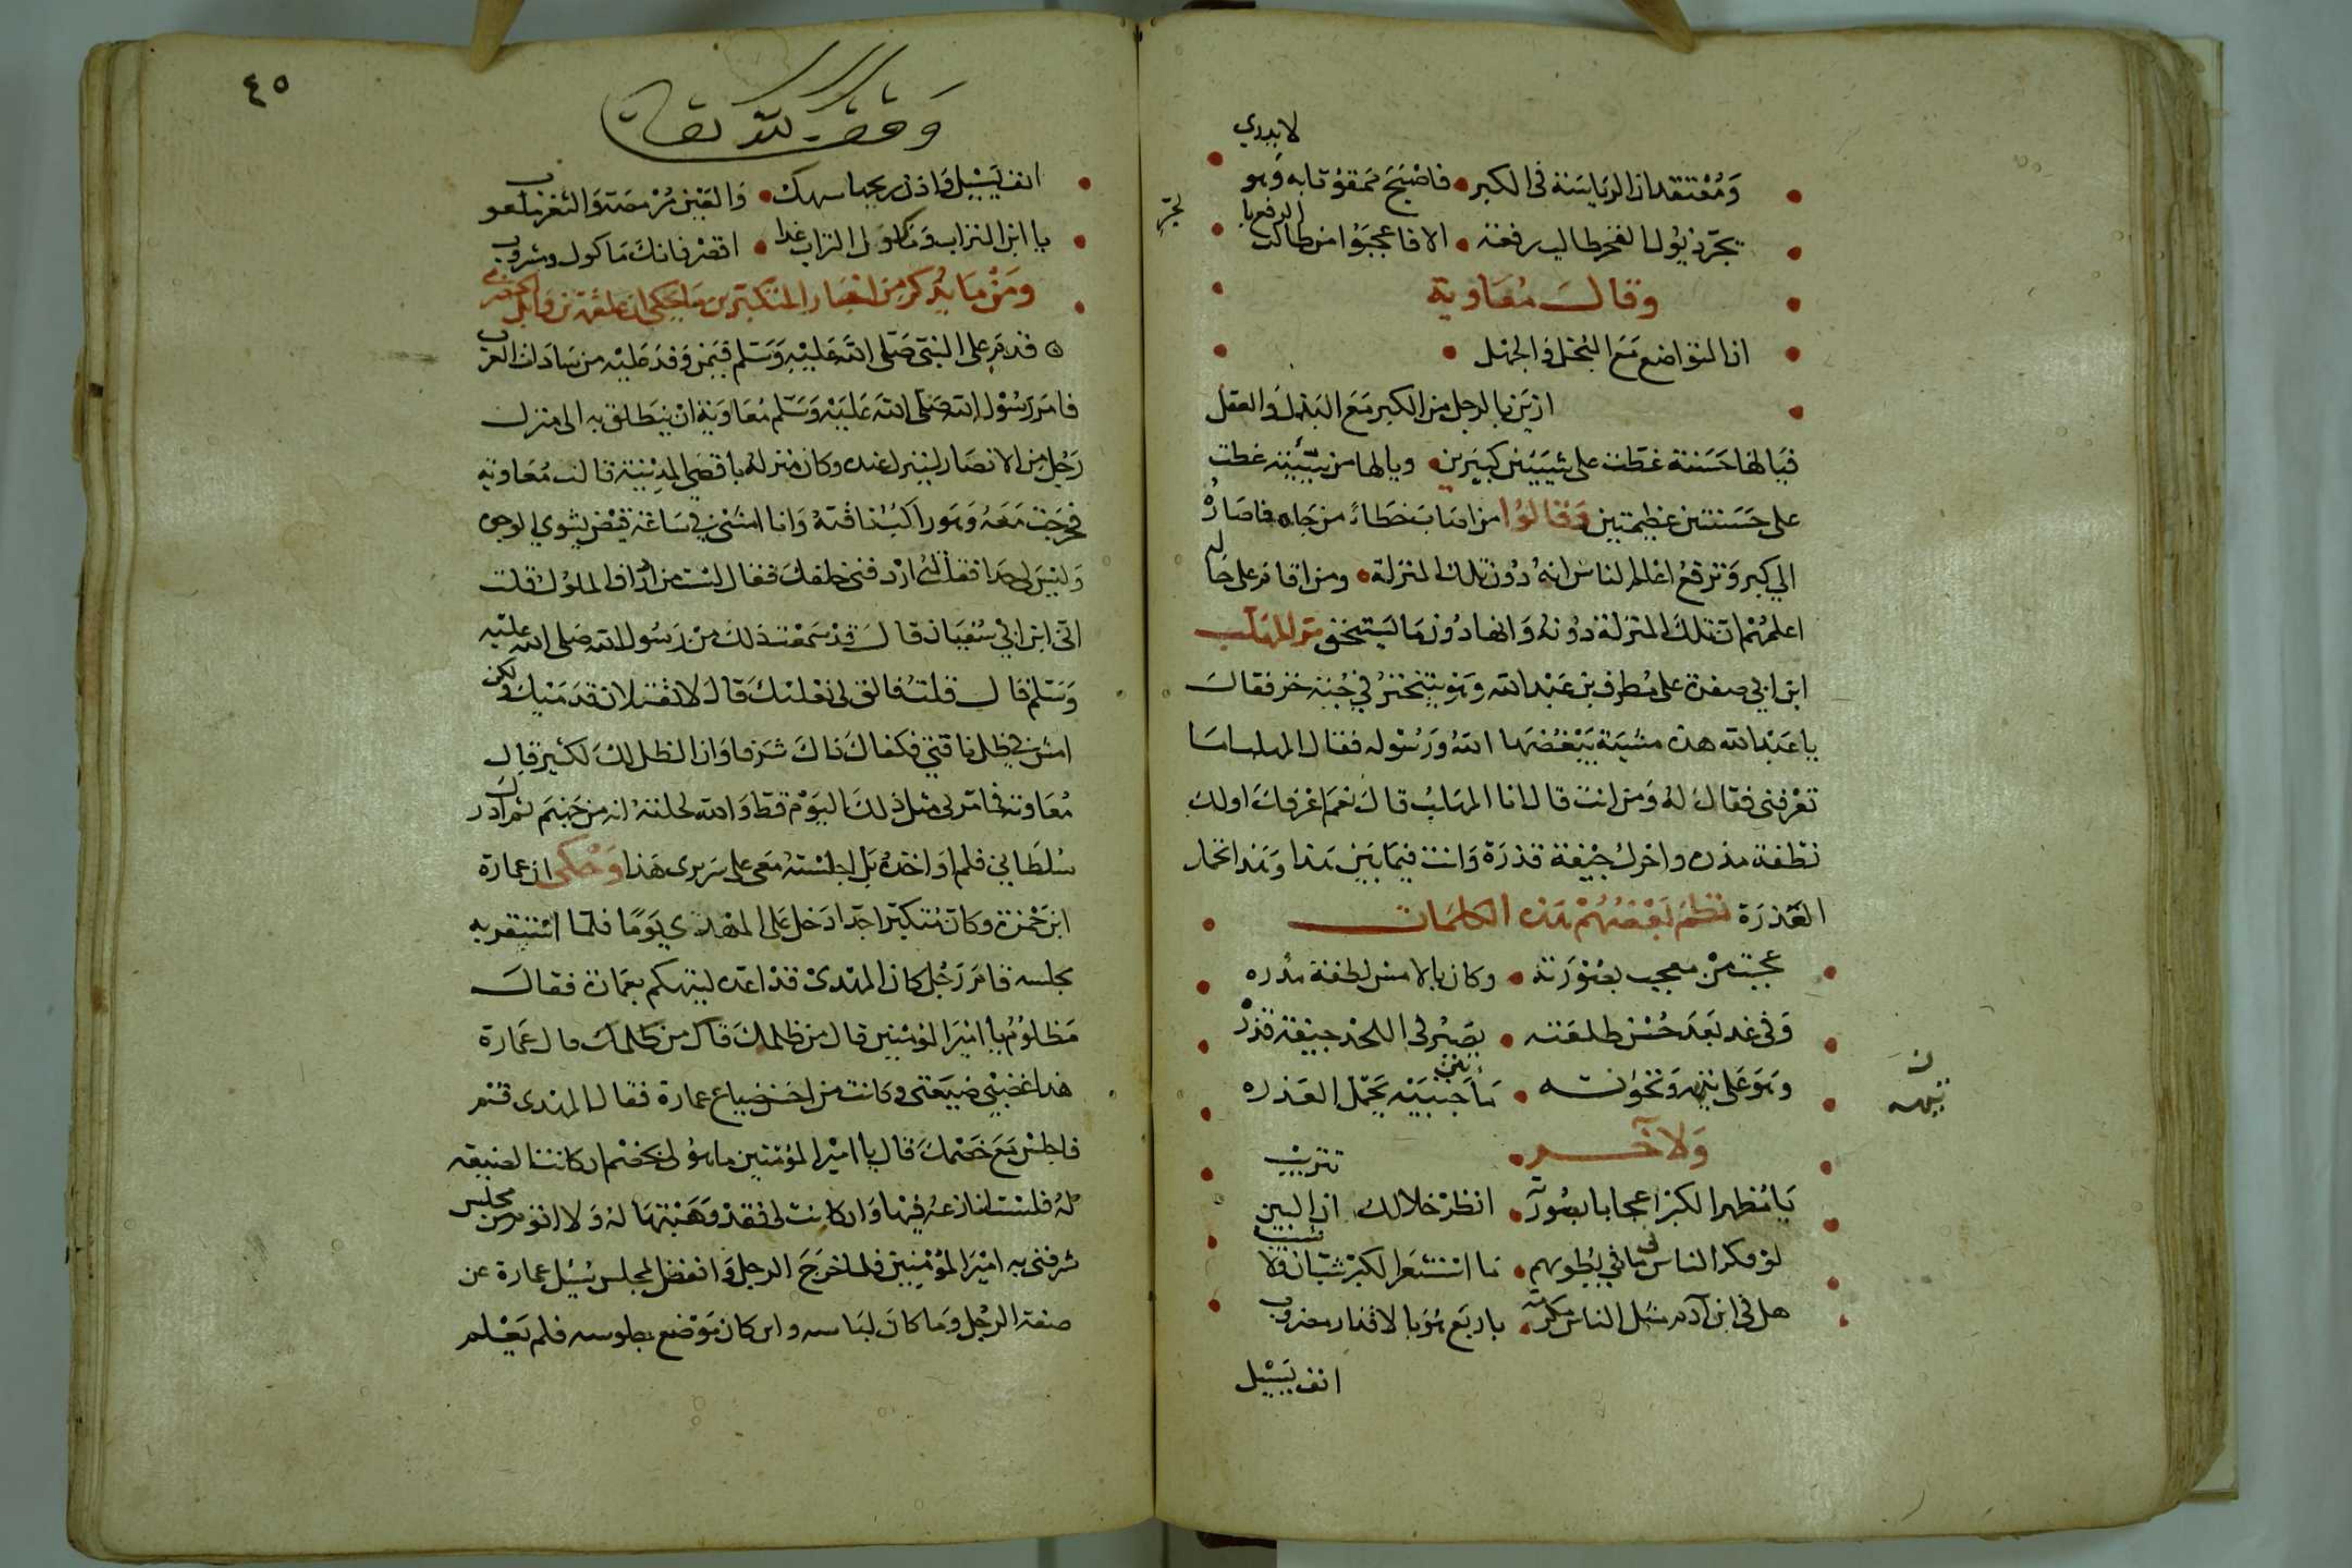 لا يدري
ومعتقد ان الرياسة فى الكبر • فاصبح ممقوتا به وهو
يجر ذيول الفخر طالب رفعة • الا فاعجبوا من طالب الرفع با
لجر
وقالت معاوية
ان التواضع مع البخل والجهل
ازين بالرجل من الكبر مع البذل والعقل
فيالها حسنة غطت على سيئتين كبيرين • ويالها من سيئة غطت
على حسنتين عظيمتين وقالوا من اصاب خطاء من جاه فاصاره
الي كبر وترفع اعلم الناس انه دون تلك المنزلة • ومن اقام على حاله
اعلمهم ان تلك المنزلة دونه وانها دون ما يستحق مر المهلب
ابن ابي صفرة على مطرف بن عبد الله وهو يتبختر في جبة خز فقال
يا عبد الله هذه مشية يبغضها الله ورسوله فقال المهلب اما
تعرفنى فقال له ومن انت قال انا المهلب قال نعم اعرفك اولك
نطفة مذره واخرك جيفة قذرة وانت فيما بين هذا وهذا تحمل
العذرة نظم بعضهم هذه الكلمات
عجبت من معجب بصورته • وكان بالامس نطفة مذره
وفى غد بعد حسن طلعته • يصير فى اللحد جيفة قذره
وهو على تيهه ونخوته • ما بين جنبيه يحمل العذره
تيهه
ولاخر
يا مظهر الكبر اعجابا بصورته • انظر خلالك ان البين تتريب
لو فكر الناس فى ما في بطونهم • ما استشعر الكبر شبان ولا شيب
هل فى ابن آدم مثل الناس مكرمة • باربع هو بالاقذار مضروب
انف يسيل
٤٥
وقف لله تعالى
انف يسيل واذن ريحها سهك • والعين مرمصة والثغر ملعوب
يا ابن التراب وماكول التراب غدا • اقصر فانك ماكول ومشروب
ومن ما يذكر من اخبار المتكبرين ما يحكى ان علقمة بن وايل الحضرمي
قدم على النبى صلى الله عليه وسلم فيمن وفد عليه من سادات العرب
فامر رسول الله صلى الله عليه وسلم معاوية ان ينطلق به الى منزل
رجل من الانصار لينزل عنده وكان منزله باقصى المدينة قالت معاوية
فخرجت معه وهو راكب ناقته وانا امشى في ساعة قيض يشوي الوجوه
وليس لى حذا فقلت اردفنى خلفك فقال لست من ارداف الملوك قلت
انى ابن ابي سفيان قال قد سمعت ذلك من رسول الله صلى الله عليه
وسلم قال قلت فالق لى نعلك قال لا تقتلان قدميك ولكن
امش في ظل ناقتي فكفاك ذاك شرفا وان الظل لك لكثير قال
معاوية فما مر لى مثل ذلك اليوم قط والله لحلفت انه من جهنم ثم ادرك
سلطاني فلم اواخذه بل اجلسته معى على سريرى هذا وحكى ان عمارة
ابن حمزة وكان متكبرا جدا دخل على المهدي يوما فلما استقر به
مجلسه قام رجل كان المهدى قد اعده ليتهكم بعمارة فقال
مظلوم يا امير المؤمنين قال من ظلمك قال من ظلمك قال عمارة
هذا غصبنى ضيعتى وكانت من احسن ضياع عمارة فقال المهدى قم
فاجلس مع خصمك قال يا امير المؤمنين ما هو لى بخصم ان كانت الضيعة
له فلست انازعه فيها وان كانت لى فقد وهبتها له ولا اقوم من مجلس
شرفنى به امير المؤمنين فلما خرج الرجل وانفض المجلس سئل عمارة عن
صفة الرجل وما كان لباسه واين كان موضع جلوسه فلم يعلم